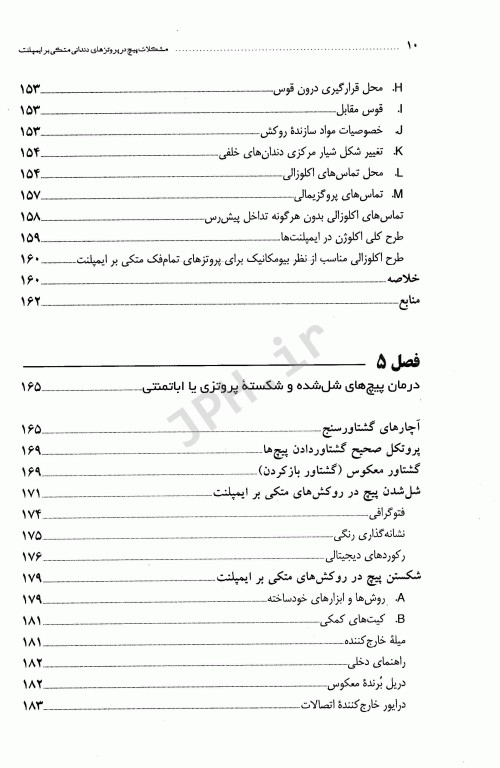 ۱۰ مشکلات پیچ در پروتزهای دندانی متکی بر ایمپلنت
H. محل قرارگیری درون قوس ۱۵۳
I. قوس مقابل ۱۵۳
J. خصوصیات مواد سازندهٔ روکش ۱۵۳
K. تغییر شکل شیار مرکزی دندان‌های خلفی ۱۵۴
L. محل تماس‌های اکلوزالی ۱۵۴
M. تماس‌های پروگزیمالی ۱۵۷
تماس‌های اکلوزالی بدون هرگونه تداخل پیش‌رس ۱۵۸
طرح کلی اکلوژن در ایمپلنت‌ها ۱۵۹
طرح اکلوزالی مناسب از نظر بیومکانیک برای پروتزهای تمام‌فک متکی بر ایمپلنت ۱۶۰
خلاصه ۱۶۰
منابع ۱۶۲
فصل ۵
درمان پیچ‌های شل‌شده و شکستهٔ پروتزی یا اباتمنتی ۱۶۵
آچارهای گشتاورسنج ۱۶۵
پروتکل صحیح گشتاوردادن پیچ‌ها ۱۶۹
گشتاور معکوس (گشتاور بازکردن) ۱۶۹
شل‌شدن پیچ در روکش‌های متکی بر ایمپلنت ۱۷۱
فتوگرافی ۱۷۴
نشانه‌گذاری رنگی ۱۷۵
رکوردهای دیجیتالی ۱۷۶
شکستن پیچ در روکش‌های متکی بر ایمپلنت ۱۷۹
A. روش‌ها و ابزارهای خودساخته ۱۷۹
B. کیت‌های کمکی ۱۸۱
میلهٔ خارج‌کننده ۱۸۱
راهنمای دخلی ۱۸۲
دریل بُرندهٔ معکوس ۱۸۲
درایور خارج‌کنندهٔ اتصالات ۱۸۳
JPH.ir